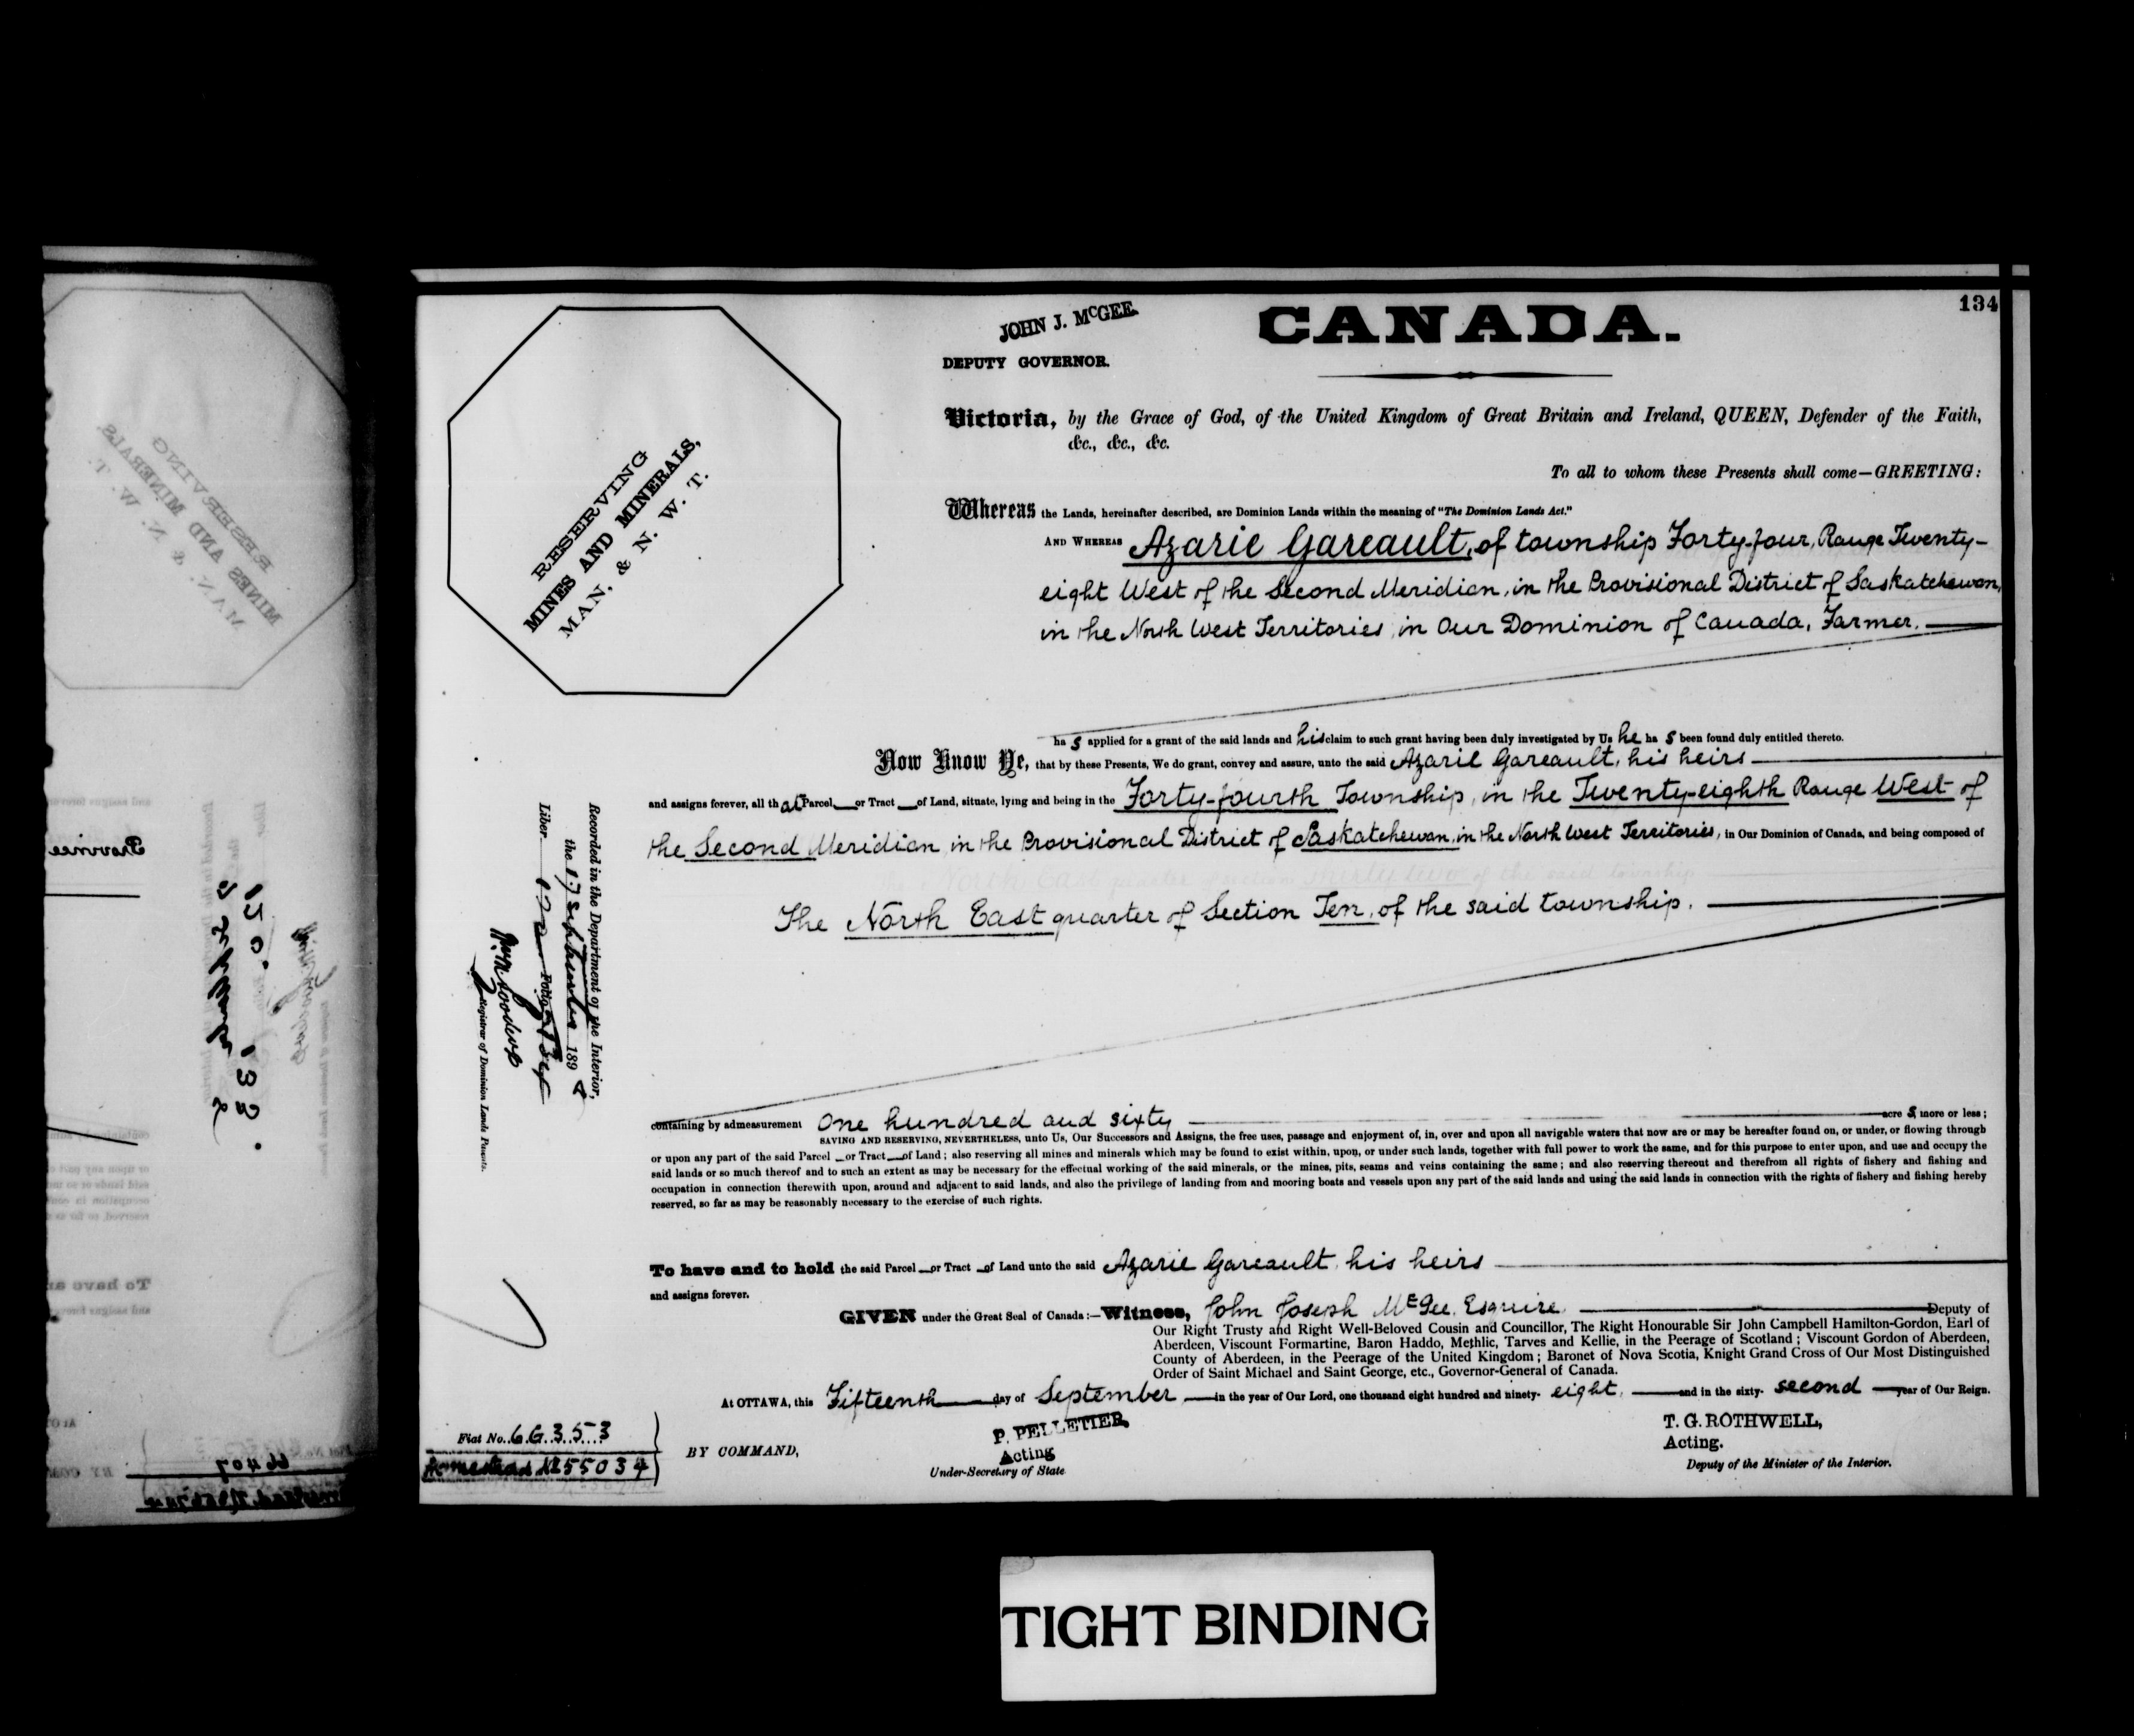 134
JOHN J. McGEE.
DEPUTY GOVERNOR.
CANADA.
RESERVING
MINES AND MINERALS,
MAN, & N. W. T.
Victoria, by the Grace of God, of the United Kingdom of Great Britain and Ireland, QUEEN, Defender of the Faith,
&c., &c., &c.
To all to whom these Presents shall come—GREETING:
Whereas the Lands, hereinafter described, are Dominion Lands within the meaning of "The Dominion Lands Act."
AND WHEREAS Azarie Gareault, of township Forty-four, Range Twenty-
eight West of the Second Meridian, in the Provisional District of Saskatchewan,
in the North West Territories, in Our Dominion of Canada, Farmer.
has applied for a grant of the said lands and his claim to such grant having been duly investigated by Us he has been found duly entitled thereto.
Now Know Ye, that by these Presents, We do grant, convey and assure, unto the said Azarie Gareault, his heirs
and assigns forever, all that Parcel or Tract of Land, situate, lying and being in the Forty-fourth Township, in the Twenty-eighth Range West of
the Second Meridian, in the Provisional District of Saskatchewan, in the North West Territories, in Our Dominion of Canada, and being composed of
The North East quarter of Section Ten, of the said township.
Recorded in the Department of the Interior,
the 17 September 1898
Liber 122 Folio 134
Registrar of Dominion Lands Patents.
containing by admeasurement One hundred and sixty acres, more or less;
SAVING AND RESERVING, NEVERTHELESS, unto Us, Our Successors and Assigns, the free uses, passage and enjoyment of, in, over and upon all navigable waters that now are or may be hereafter found on, or under, or flowing through
or upon any part of the said Parcel or Tract of Land; also reserving all mines and minerals which may be found to exist within, upon, or under such lands, together with full power to work the same, and for this purpose to enter upon, and use and occupy the
said lands or so much thereof and to such an extent as may be necessary for the effectual working of the said minerals, or the mines, pits, seams and veins containing the same; and also reserving thereout and therefrom all rights of fishery and fishing and
occupation in connection therewith upon, around and adjacent to said lands, and also the privilege of landing from and mooring boats and vessels upon any part of the said lands and using the said lands in connection with the rights of fishery and fishing hereby
reserved, so far as may be reasonably necessary to the exercise of such rights.
To have and to hold the said Parcel or Tract of Land unto the said Azarie Gareault, his heirs
and assigns forever.
GIVEN under the Great Seal of Canada:—Witness, John Joseph McGee, Esquire, Deputy of
Our Right Trusty and Right Well-Beloved Cousin and Councillor, The Right Honourable Sir John Campbell Hamilton-Gordon, Earl of
Aberdeen, Viscount Formartine, Baron Haddo, Methlic, Tarves and Kellie, in the Peerage of Scotland; Viscount Gordon of Aberdeen,
County of Aberdeen, in the Peerage of the United Kingdom; Baronet of Nova Scotia, Knight Grand Cross of Our Most Distinguished
Order of Saint Michael and Saint George, etc., Governor-General of Canada.
At OTTAWA, this Fifteenth day of September in the year of Our Lord, one thousand eight hundred and ninety-eight, and in the sixty-second year of Our Reign.
Fiat No. 66353
Homestead No 55034
BY COMMAND,
P. PELLETIER,
Acting
Under-Secretary of State
T. G. ROTHWELL,
Acting.
Deputy of the Minister of the Interior.
TIGHT BINDING